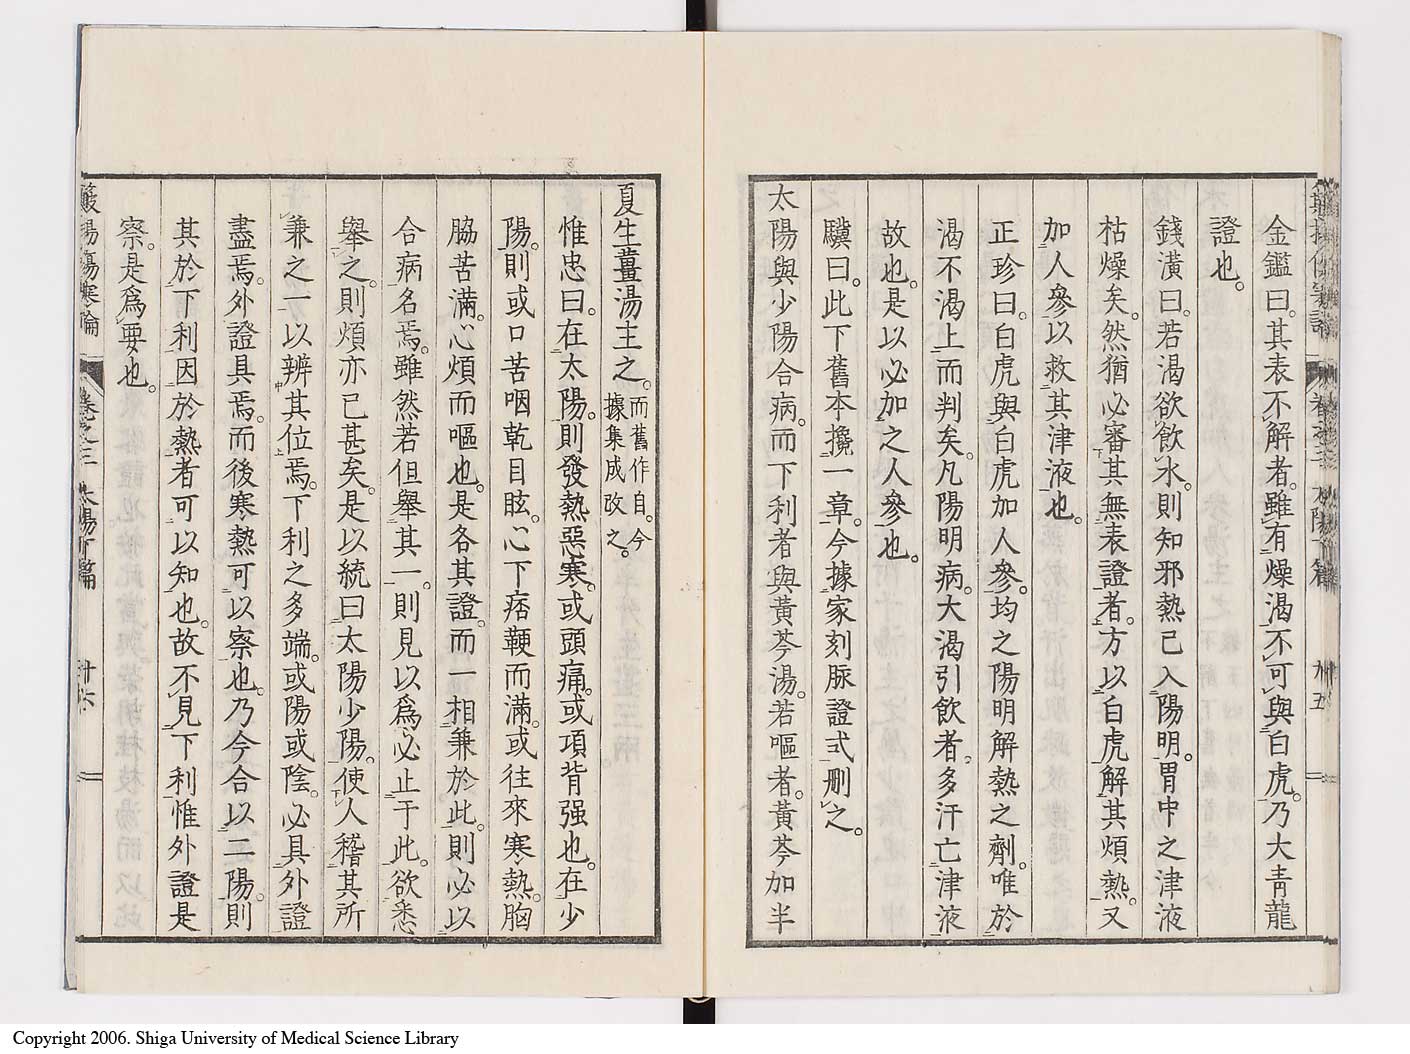 金鑑曰。其表不解者。雖有燥渴不可與白虎。乃大青龍
證也。
錢潢曰。若渴欲飲水。則知邪熱已入陽明。胃中之津液
枯燥矣。然猶必審其無表證者。方以白虎解其煩熱。又
加人參以救其津液也。
正珍曰。白虎與白虎加人參。均之陽明解熱之劑。唯於
渴不渴上而判矣。凡陽明病。大渴引飲者。多汗亡津液
故也。是以必加之人參也。
驥曰。此下舊本攙一章。今據家刻脈證式刪之。
太陽與少陽合病。而下利者。與黃芩湯。若嘔者。黃芩加半
夏生薑湯主之。而舊作自。今
據集成改之。
惟忠曰。在太陽。則發熱惡寒。或頭痛。或項背强也。在少
陽。則或口苦咽乾目眩。心下痞鞕而滿。或往來寒熱。胸
脇苦滿。心煩而嘔也。是各其證。而一相兼於此。則必以
合病名焉。雖然若但舉其一。則見以爲必止于此。欲悉
舉之。則煩亦已甚矣。是以統曰太陽少陽。使人稽其所
兼之一。以辨其位焉。下利之多端。或陽或陰。必具外證
盡焉。外證具焉。而後寒熱可以察也。乃今合以二陽。則
其於下利因於熱者可以知也。故不見下利惟外證是
察。是爲要也。
傷寒論 卷之三 太陽下篇 卅六
卅五